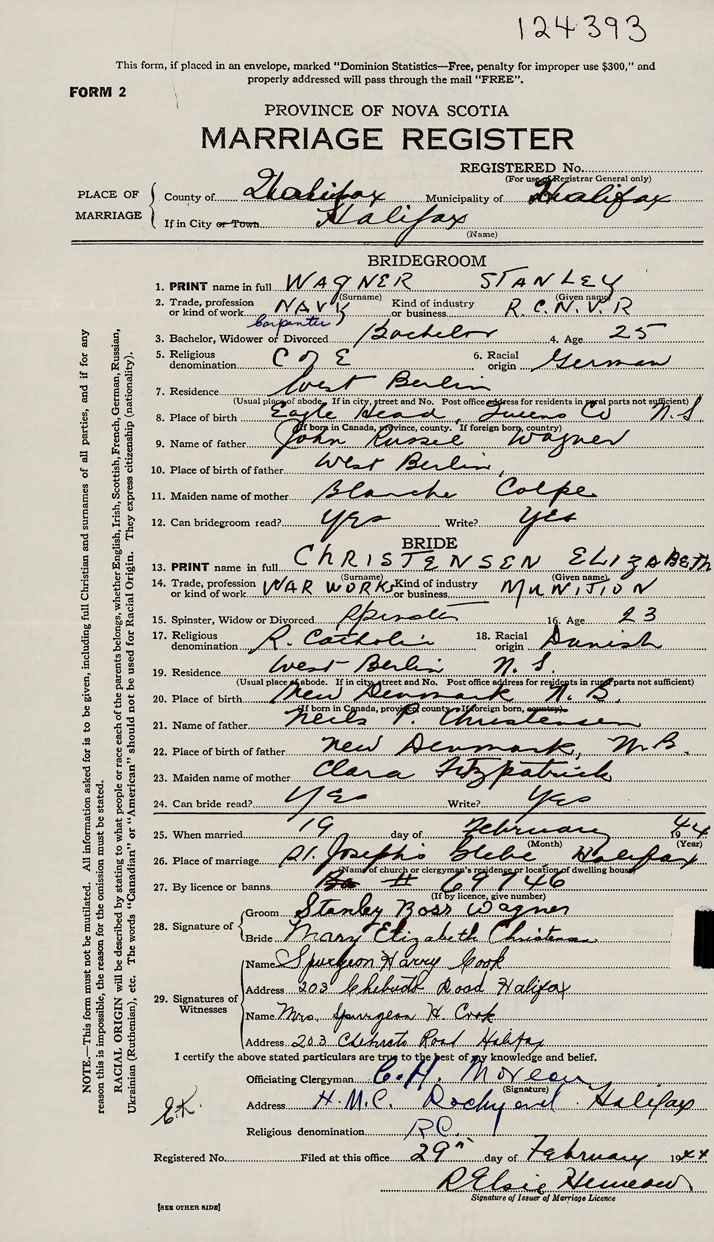 124393
This form, if placed in an envelope, marked "Dominion Statistics—Free, penalty for improper use $300," and
properly addressed will pass through the mail "FREE".
FORM 2
PROVINCE OF NOVA SCOTIA
MARRIAGE REGISTER
REGISTERED No.
(For use of Registrar General only)
PLACE OF MARRIAGE
County of Halifax Municipality of Halifax
If in City or Town Halifax
(Name)
BRIDEGROOM
1. PRINT name in full WAGNER STANLEY
(Surname) (Given name)
2. Trade, profession or kind of work NAVY Kind of industry or business R.C.N.V.R
Carpenter
3. Bachelor, Widower or Divorced Bachelor 4. Age 25
5. Religious denomination C of E 6. Racial origin German
7. Residence West Berlin
(Usual place of abode. If in city, street and No. Post office address for residents in rural parts not sufficient)
8. Place of birth Eagle Head, Queens Co N.S.
(If born in Canada, province, county. If foreign born, country)
9. Name of father John Russel Wagner
10. Place of birth of father West Berlin,
11. Maiden name of mother Blanche Colpe
12. Can bridegroom read? Yes Write? Yes
BRIDE
13. PRINT name in full CHRISTENSEN ELIZABETH
(Surname) (Given name)
14. Trade, profession or kind of work WAR WORKS Kind of industry or business MUNITION
15. Spinster, Widow or Divorced Spinster 16. Age 23
17. Religious denomination R. Catholic 18. Racial origin Danish
19. Residence West Berlin N.S.
(Usual place of abode. If in city, street and No. Post office address for residents in rural parts not sufficient)
20. Place of birth New Denmark N.B.
(If born in Canada, province, county. If foreign born, country)
21. Name of father Neils P. Christensen
22. Place of birth of father New Denmark, N.B.
23. Maiden name of mother Clara Fitzpatrick
24. Can bride read? Yes Write? Yes
25. When married 19 day of February 1944
(Month) (Year)
26. Place of marriage St. Joseph's Glebe Halifax
(Name of church or clergyman's residence or location of dwelling house)
27. By licence or banns # 69746
(If by licence, give number)
28. Signature of
Groom Stanley Ross Wagner
Bride Mary Elizabeth Christensen
29. Signatures of Witnesses
Name Spurgeon Harry Cook
Address 203 Chebucto Road Halifax
Name Mrs. Spurgeon H. Cook
Address 203 Chebucto Road Halifax
I certify the above stated particulars are true to the best of my knowledge and belief.
Officiating Clergyman C.H.
(Signature)
Address H.M.C. Dockyard Halifax
Religious denomination R.C.
Registered No. Filed at this office 29th day of February 1944
R Elsie
Signature of Issuer of Marriage Licence
[SEE OTHER SIDE]
NOTE.—This form must not be mutilated. All information asked for is to be given, including full Christian and surnames of all parties, and if for any
reason this is impossible, the reason for the omission must be stated.
RACIAL ORIGIN will be described by stating to what people or race each of the parents belongs, whether English, Irish, Scottish, French, German, Russian,
Ukrainian (Ruthenian), etc. The words "Canadian" or "American" should not be used for Racial Origin. They express citizenship (nationality).